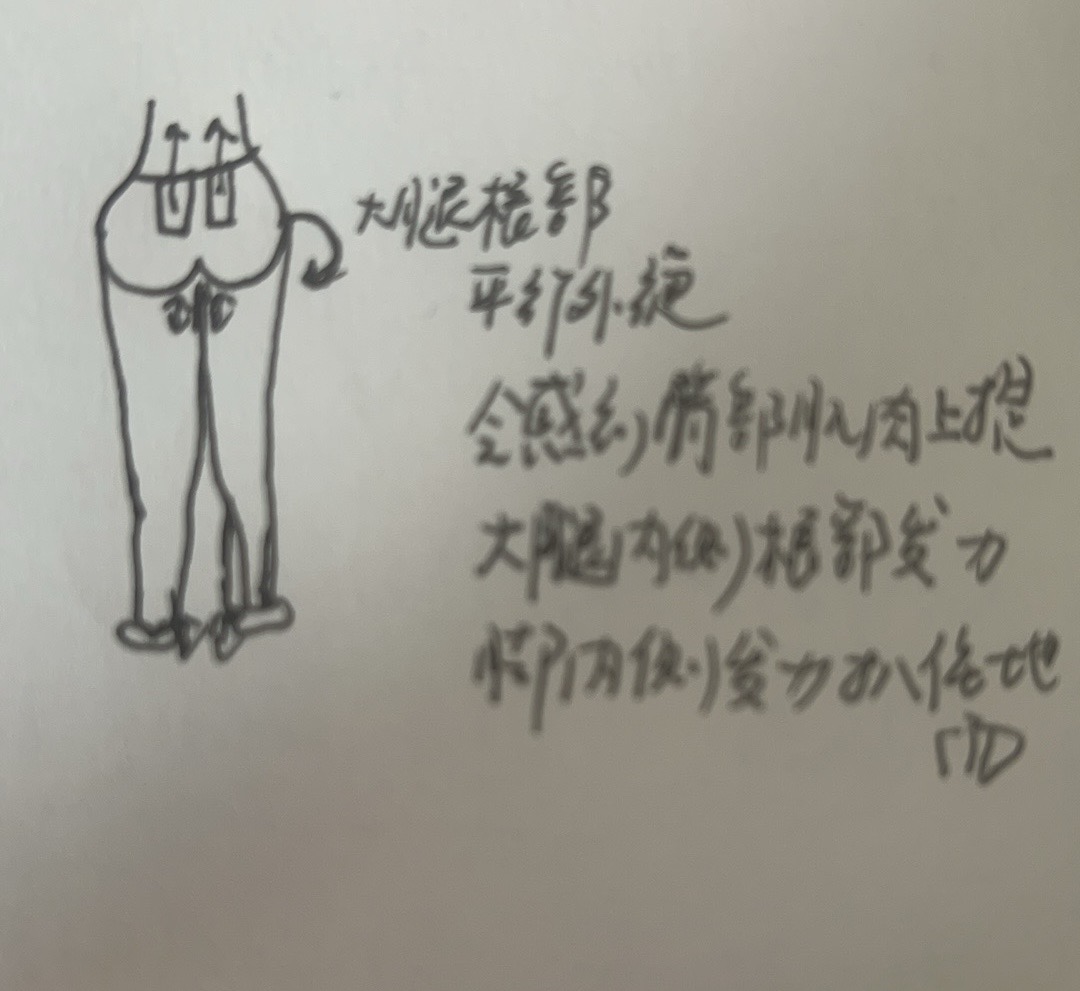 大腿根部
平行外旋
会感到臀部肌肉上提
大腿内侧根部发力
脚内侧发力扒住地
面